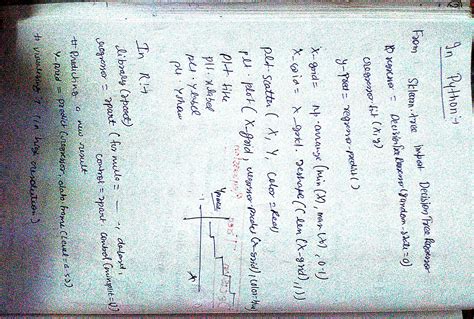 In Python:-
From Sklearn.tree import DecisionTreeRegressor
regressor = DecisionTreeRegressor(random_state=0)
regressor.fit(X,y)
y-pred = regressor.predict()
X-grid = np.arrange(min(X), max(X), 0.1)
X-grid = X-grid.reshape((len(X-grid),1))
plt.scatter(X, Y, color=Red)
plt.plot(X-grid, regressor.predict(X-grid), color=blue)
plt.title
plt.xlabel
plt.ylabel
plt.
In R:-
library(rpart)
regressor = rpart(formula = , data=
control = rpart.control(minsplit=1))
# Predicting a new result
y-pred = predict(regressor, data.frame(level=6.5))
# in high resolution